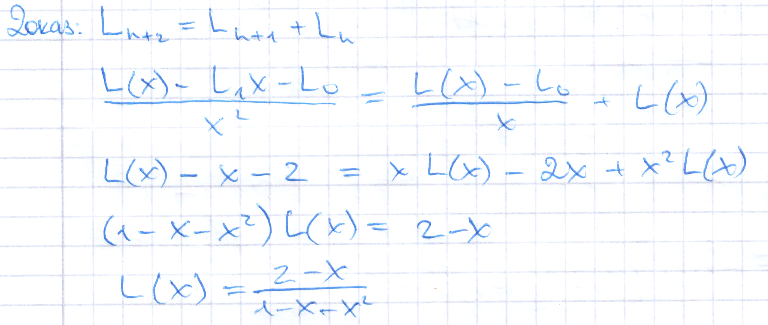 Доказ: L_{n+2} = L_{n+1} + L_n
(L(x) - L_1x - L_0)/x^2 = (L(x) - L_0)/x + L(x)
L(x) - x - 2 = x L(x) - 2x + x^2 L(x)
(1 - x - x^2) L(x) = 2 - x
L(x) = (2 - x)/(1 - x - x^2)